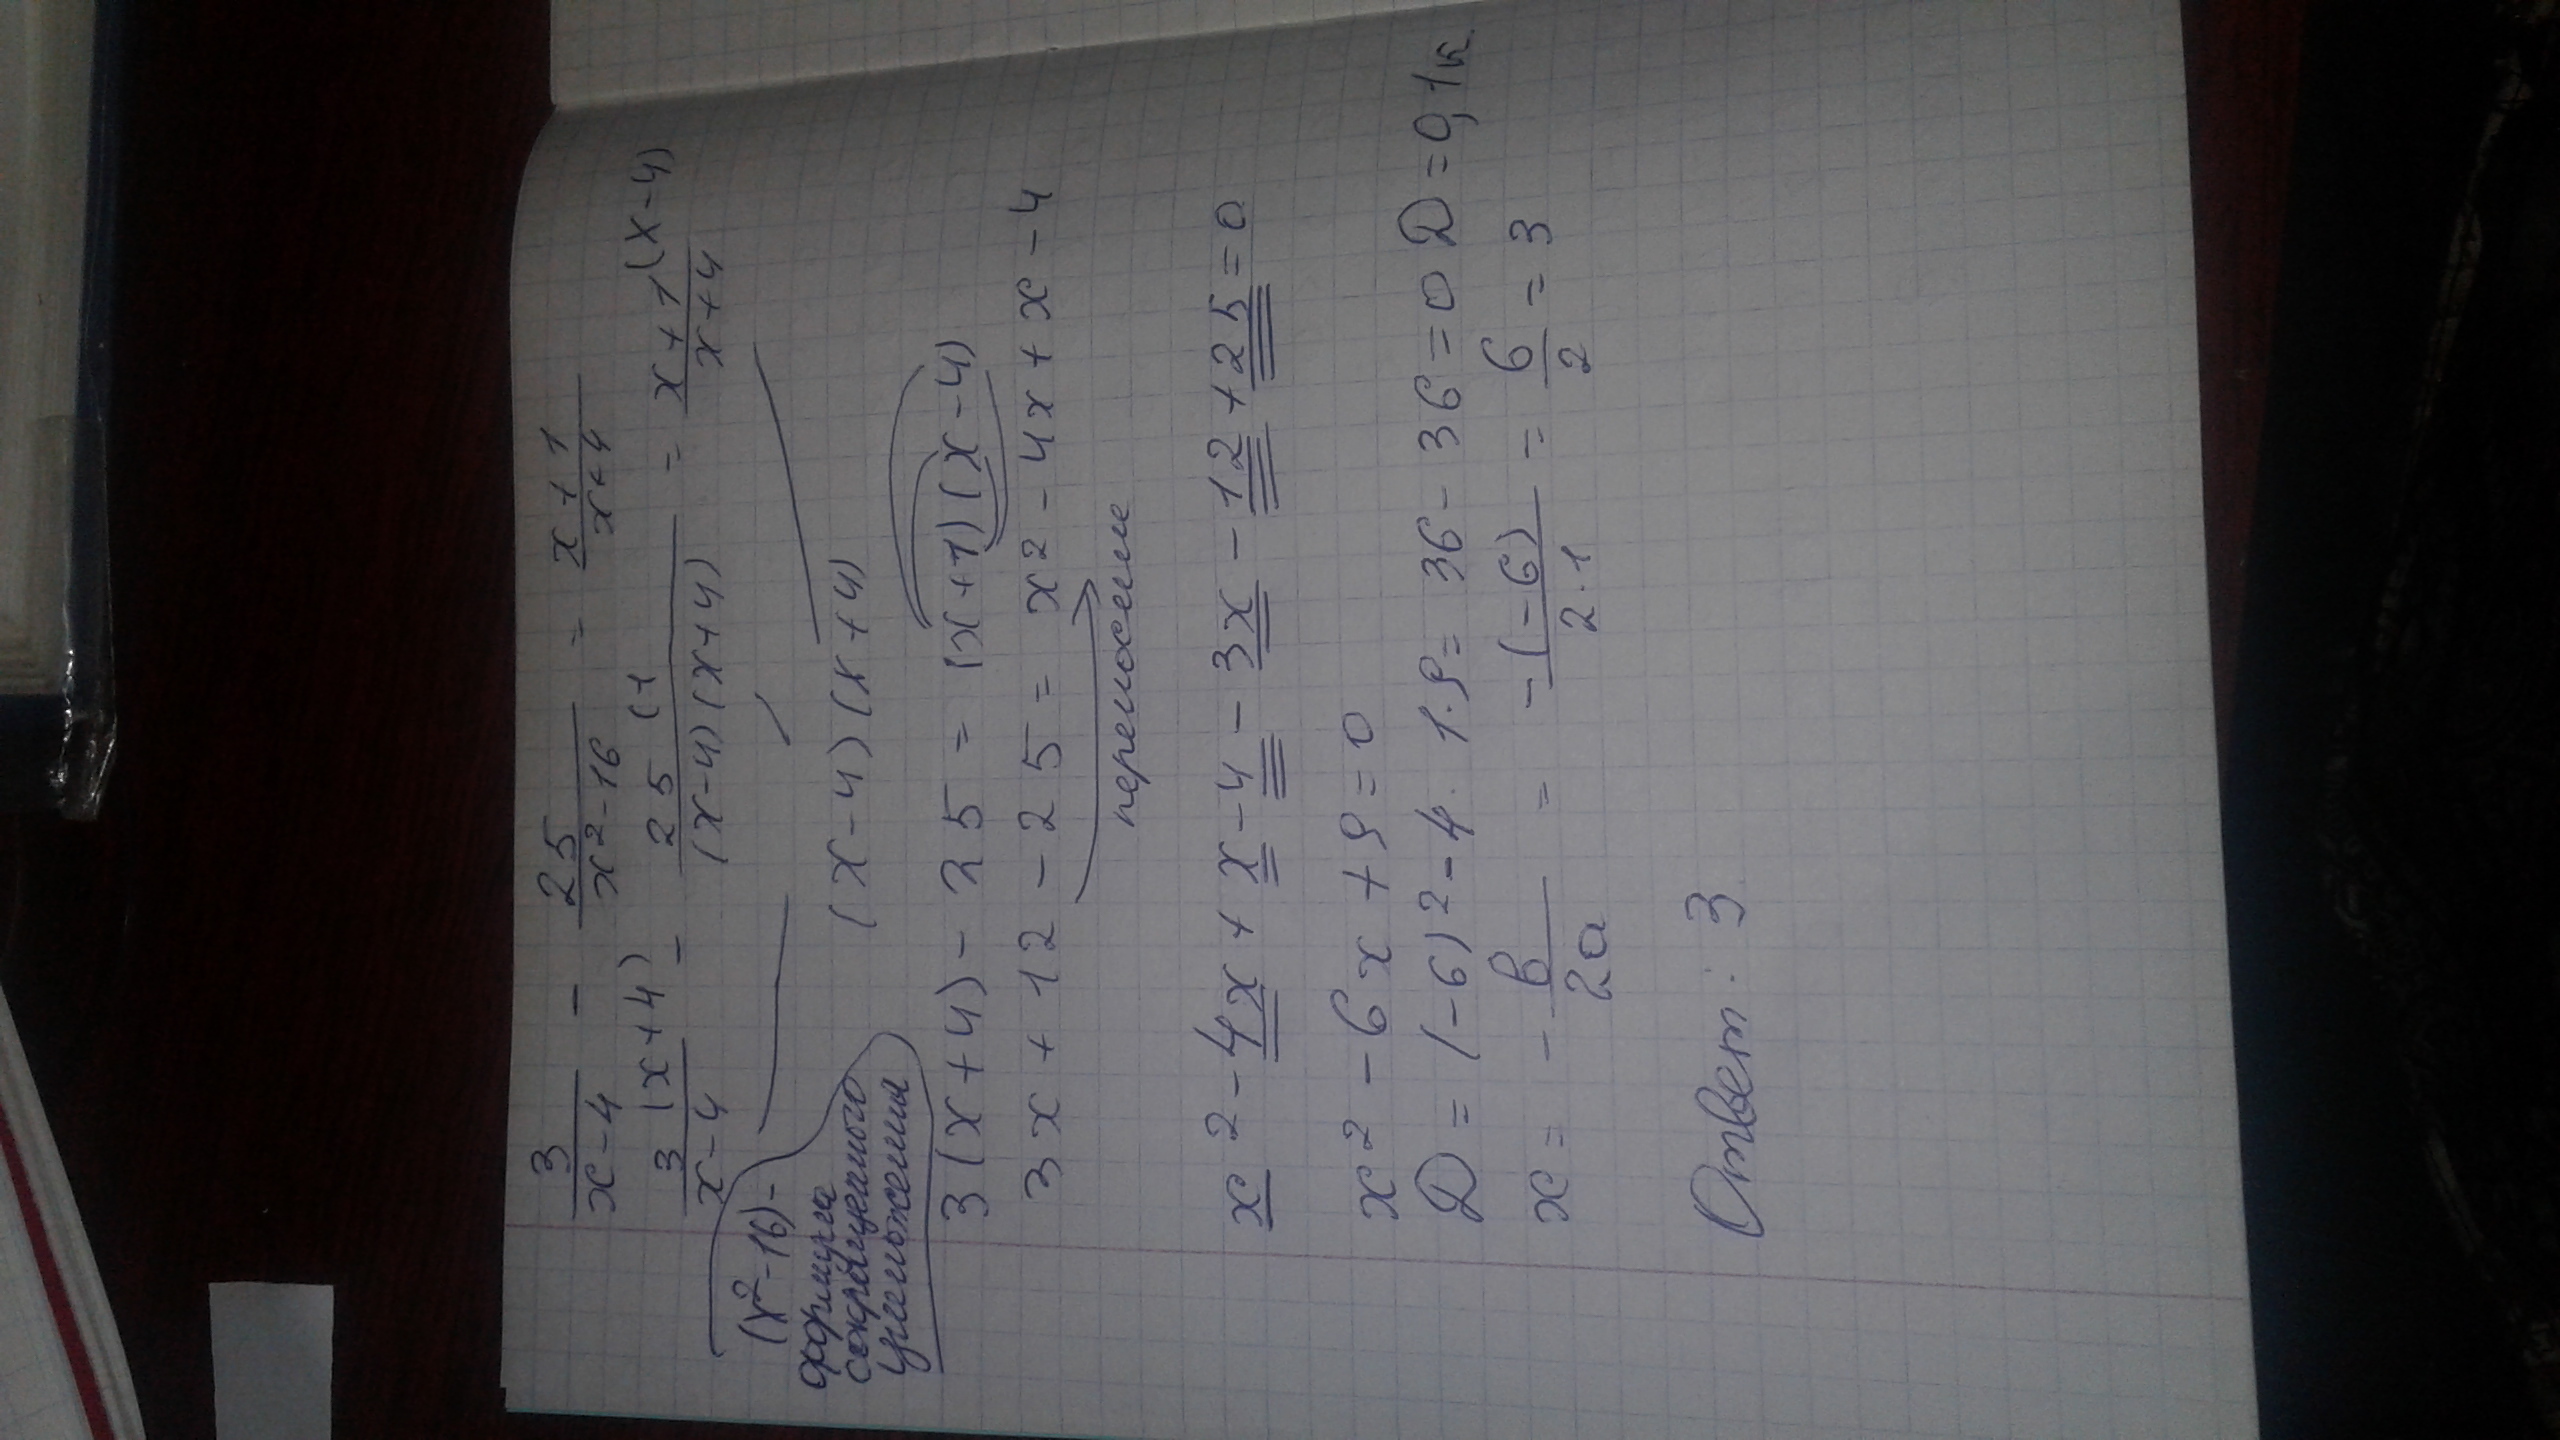 3/(x-4) - 25/(x²-16) = (x+1)/(x+4)
3/(x-4) (x+4) - 25/((x-4)(x+4)) (1 = (x+1)/(x+4) (x-4)
(x²-16)-
формула
сокращенного
умножения
(x-4)(x+4)
3(x+4)-25=(x+1)(x-4)
3x+12-25=x²-4x+x-4
переносим
x²-4x+x-4-3x-12+25=0
x²-6x+9=0
D=(-6)²-4·1·9=36-36=0 D=0, 1к.
x=-в/2a = -(-6)/2·1 = 6/2 = 3
Ответ: 3